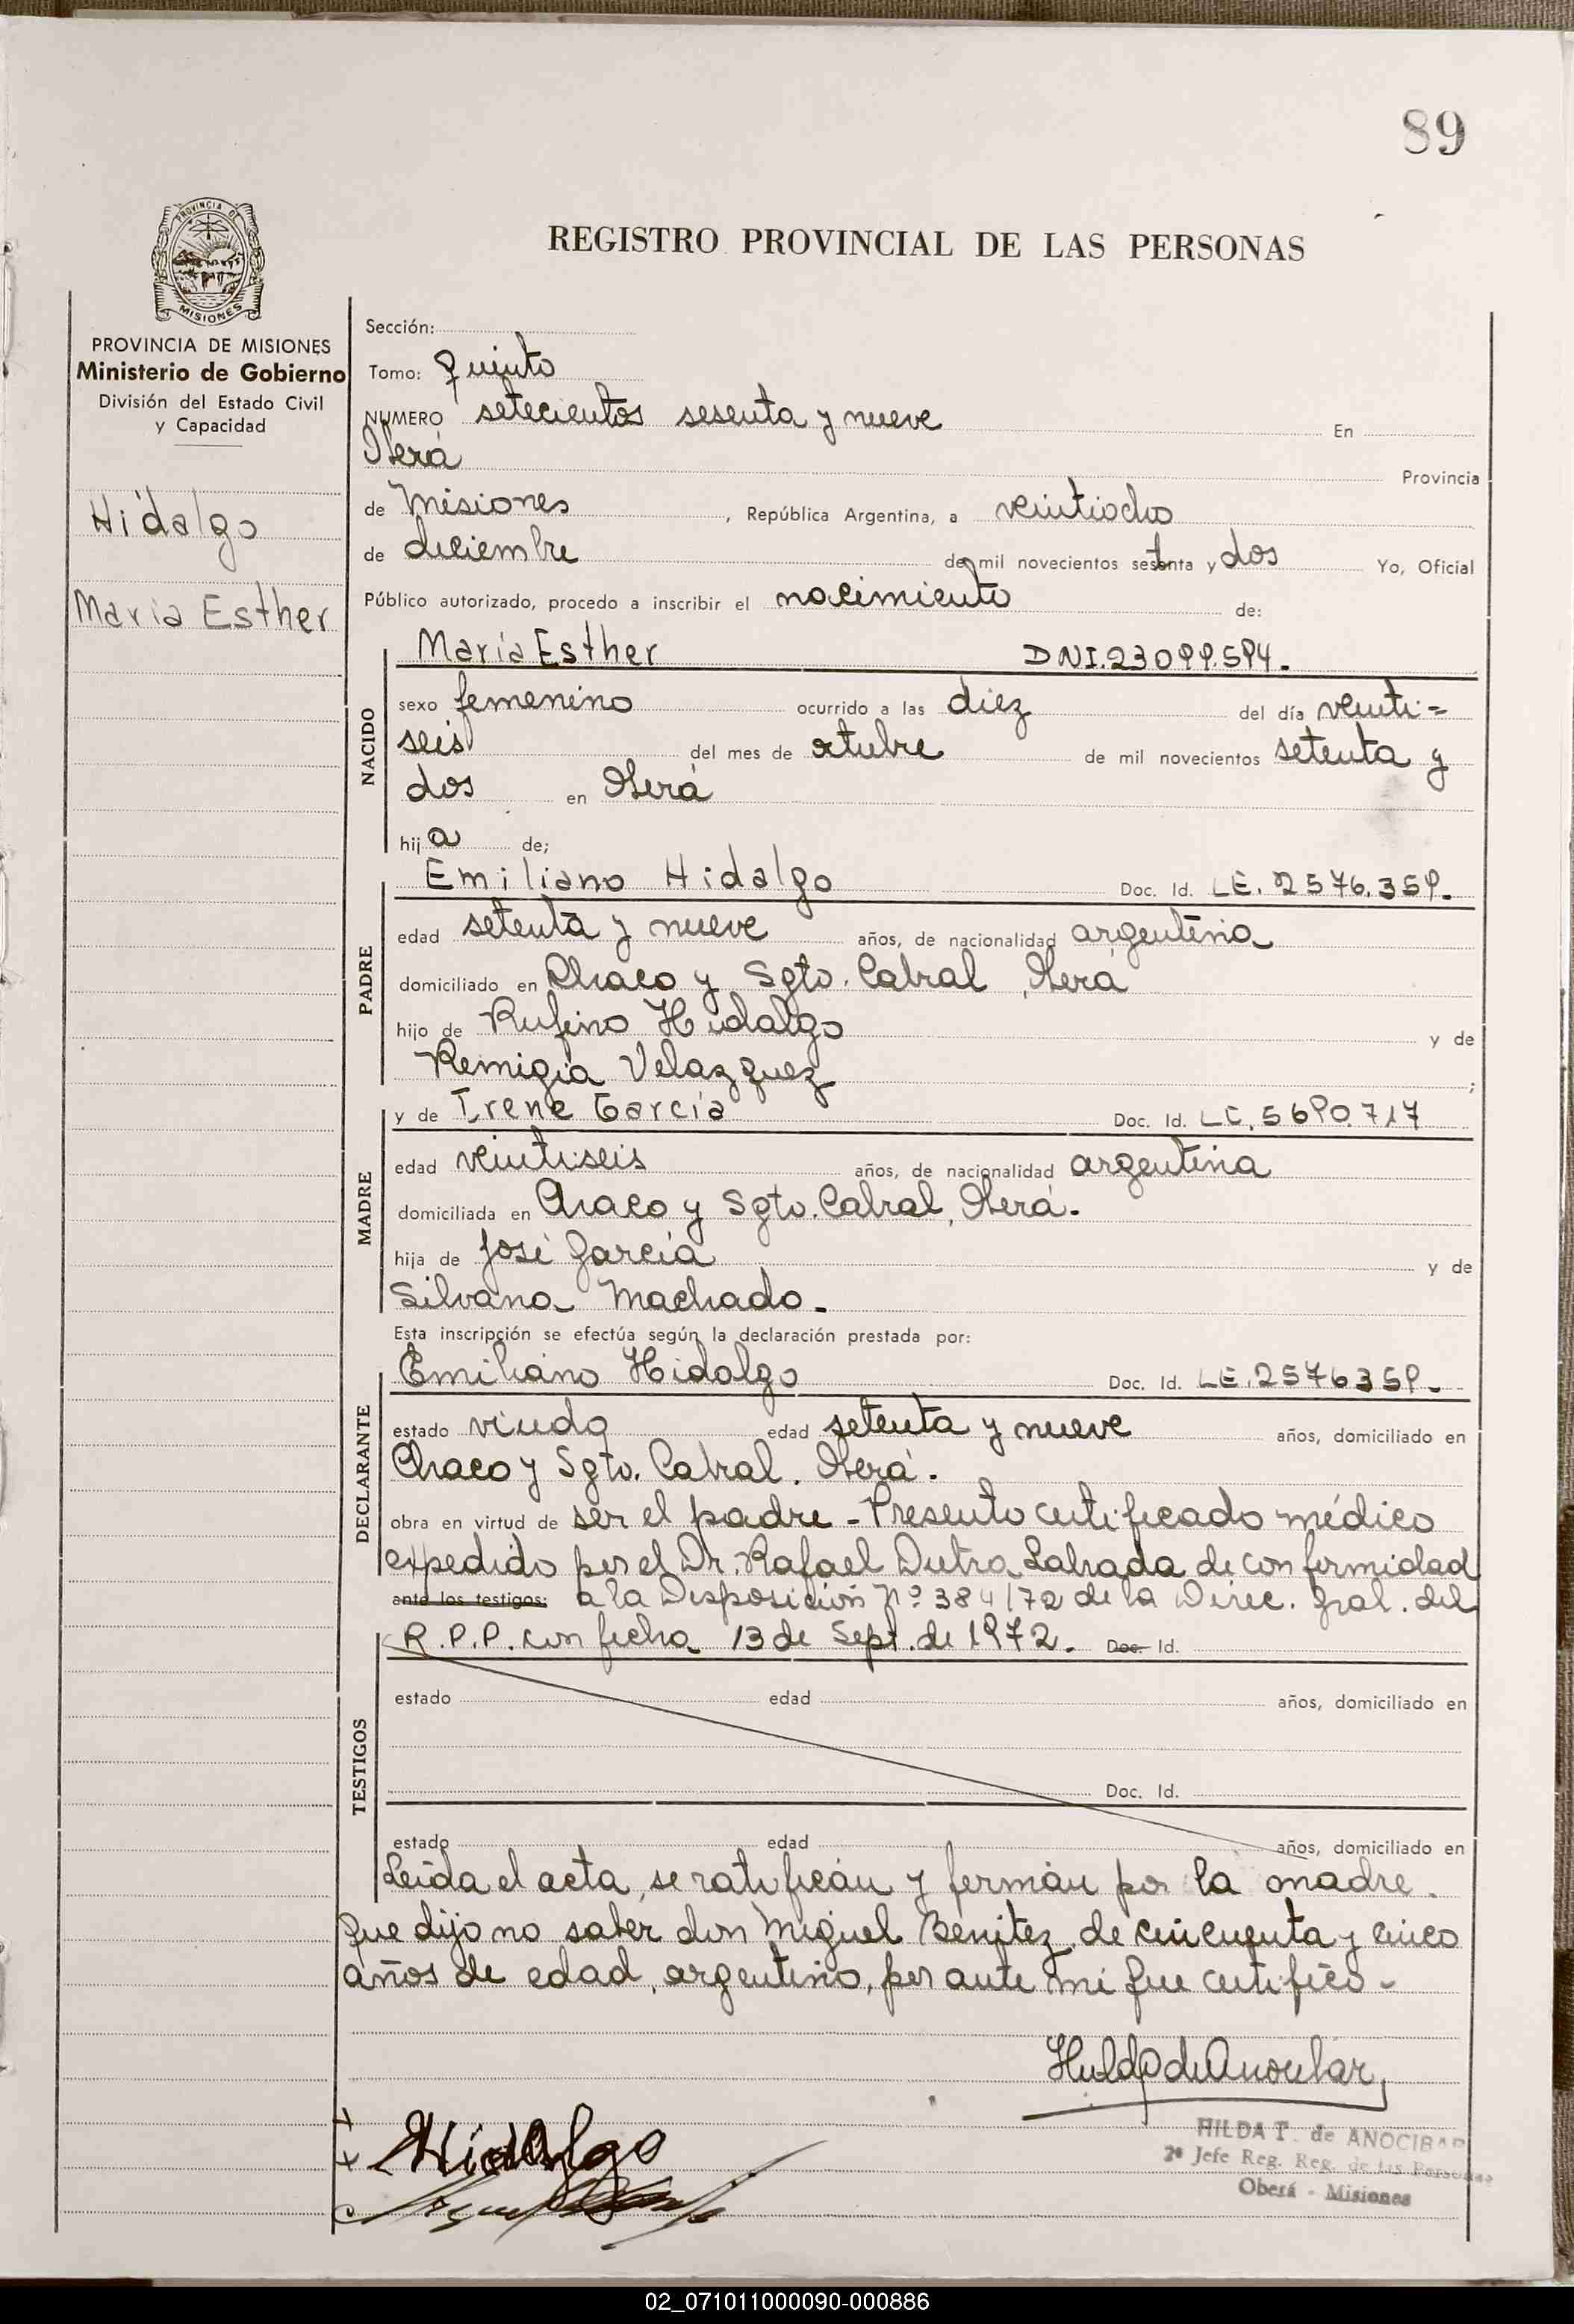 89
PROVINCIA DE
MISIONES
REGISTRO PROVINCIAL DE LAS PERSONAS
PROVINCIA DE MISIONES
Ministerio de Gobierno
División del Estado Civil
y Capacidad
Hidalgo
Maria Esther
Sección:
Tomo: quinto
NUMERO setecientos sesenta y nueve En
Oberá Provincia
de Misiones, República Argentina, a veintiocho
de diciembre de mil novecientos setenta y dos Yo, Oficial
Público autorizado, procedo a inscribir el nacimiento de:
NACIDO
María Esther DNI.23099.594.
sexo femenino ocurrido a las diez del día veinti=
seis del mes de octubre de mil novecientos setenta y
dos en Oberá
hija de;
PADRE
Emiliano Hidalgo Doc. Id. LE. 2576.359.
edad setenta y nueve años, de nacionalidad argentina
domiciliado en Chaco y Sgto. Cabral, Oberá
hijo de Rufino Hidalgo y de
Remigia Velazquez ;
MADRE
y de Irene García Doc. Id. LC. 5690.717
edad veintiseis años, de nacionalidad argentina
domiciliada en Chaco y Sgto. Cabral, Oberá.
hija de José García y de
Silvana Machado.
Esta inscripción se efectúa según la declaración prestada por:
DECLARANTE
Emiliano Hidalgo Doc. Id. LE. 2576359.
estado viudo edad setenta y nueve años, domiciliado en
Chaco y Sgto. Cabral. Oberá.
obra en virtud de ser el padre - Presento certificado médico
expedido por el Dr. Rafael Dutra Labrada de conformidad
ante los testigos: a la Disposición Nº 384/72 de la Direc. Gral. del
R.P.P. con fecha 13 de Sept. de 1972. Doc. Id.
TESTIGOS
estado edad años, domiciliado en
Doc. Id.
estado edad años, domiciliado en
Leída el acta, se ratifican y firman por la madre
que dijo no saber don Miguel Benitez de cincuenta y cinco
años de edad, argentino, por ante mí que certifico -
Hidalgo
HILDA T. de ANOCIBAR
2º Jefe Reg. Reg. de las Personas
Oberá - Misiones
02_071011000090-000886